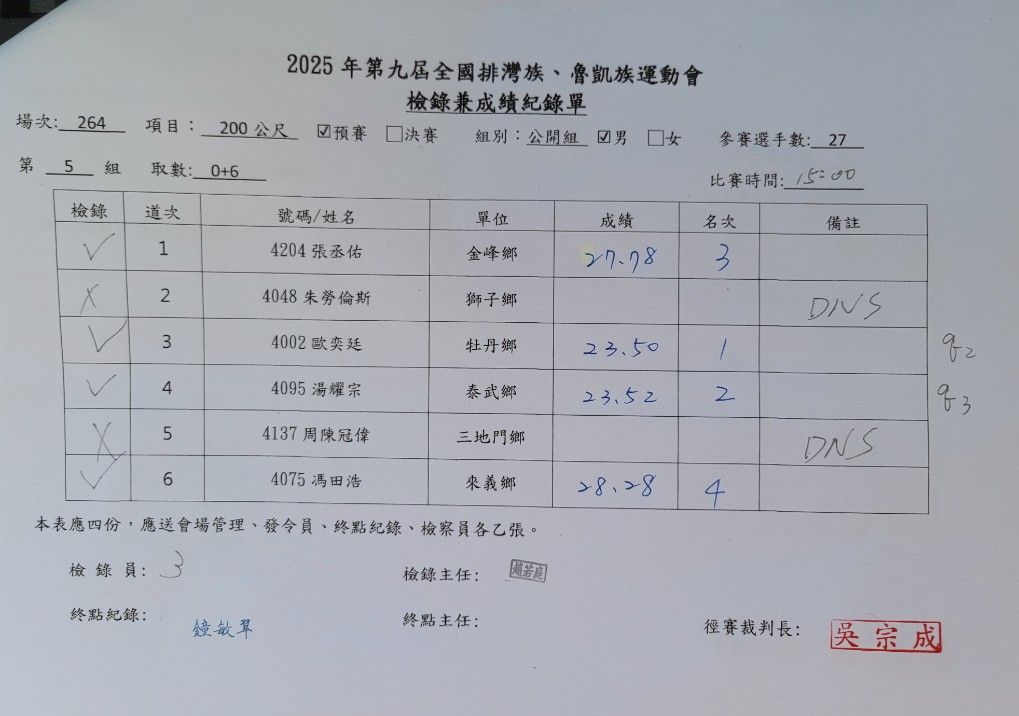 2025 年第九屆全國排灣族、魯凱族運動會
檢錄兼成績紀錄單
場次: 264 項目： 200 公尺 ☑預賽 □決賽 組別：公開組 ☑男 □女 參賽選手數: 27
第 5 組 取數: 0+6 比賽時間: 15:00
檢錄 道次 號碼/姓名 單位 成績 名次 備註
✓ 1 4204 張丞佑 金峰鄉 27.78 3
X 2 4048 朱勞倫斯 獅子鄉 DNS
✓ 3 4002 歐奕廷 牡丹鄉 23.50 1 q2
✓ 4 4095 湯耀宗 泰武鄉 23.52 2 q3
X 5 4137 周陳冠偉 三地門鄉 DNS
✓ 6 4075 馮田浩 來義鄉 28.28 4
本表應四份，應送會場管理、發令員、終點紀錄、檢察員各乙張。
檢 錄 員: 3 檢錄主任: 趙若庭
終點紀錄: 鐘敏翠 終點主任: 徑賽裁判長: 吳宗成